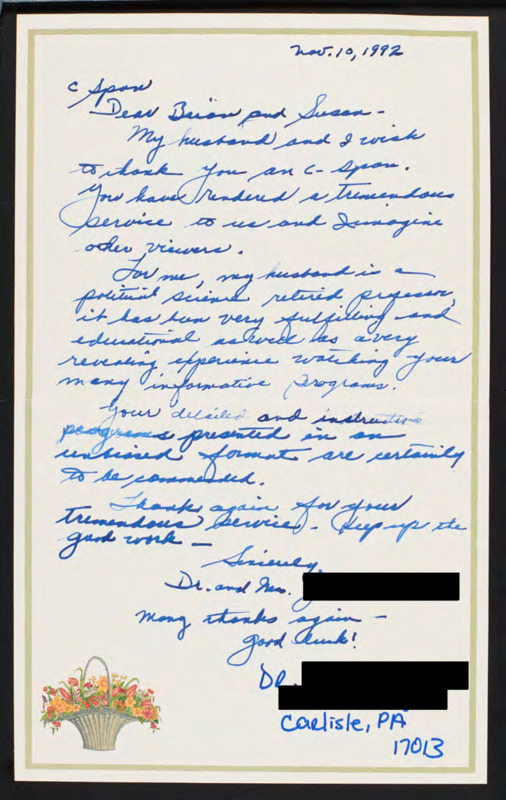 Nov. 10, 1992
C Span
Dear Brian and Susan -
My husband and I wish
to thank you on C-Span.
You have rendered a tremendous
service to us and I imagine
other viewers.
For me, my husband is a
political science retired professor,
it has been very fulfilling and
educational as well as a very
revealing experience watching your
many informative programs.
Your detailed and instructive
programs presented in an
unbiased format are certainly
to be commended.
Thanks again for your
tremendous service - Keep up the
good work -
Sincerely,
Dr. and Mrs.
Many thanks again -
good luck!
Dr.
Carlisle, PA
17013